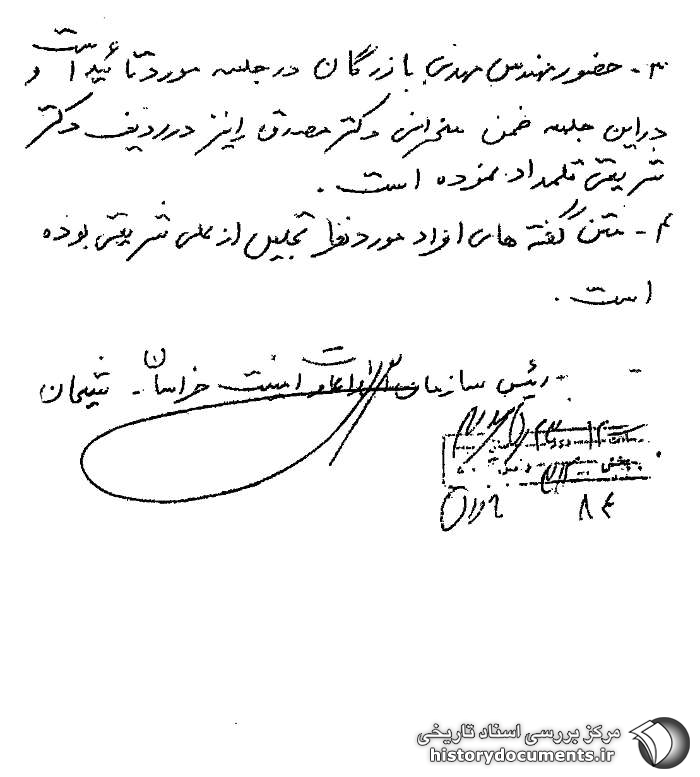 ۳- حضور مهندس مهدی بازرگان در جلسه مورد تائید است و
در این جلسه ضمن سخنرانی دکتر مصدق را نیز در ردیف دکتر
شریعتی قلمداد نموده است.
۴- متن گفته های افراد مورد نظر تجلیل از علی شریعتی بوده
است.
رئیس سازمان اطلاعات و امنیت خراسان - شیخان
بخش
۸۴
مرکز بررسی اسناد تاریخی
historydocuments.ir